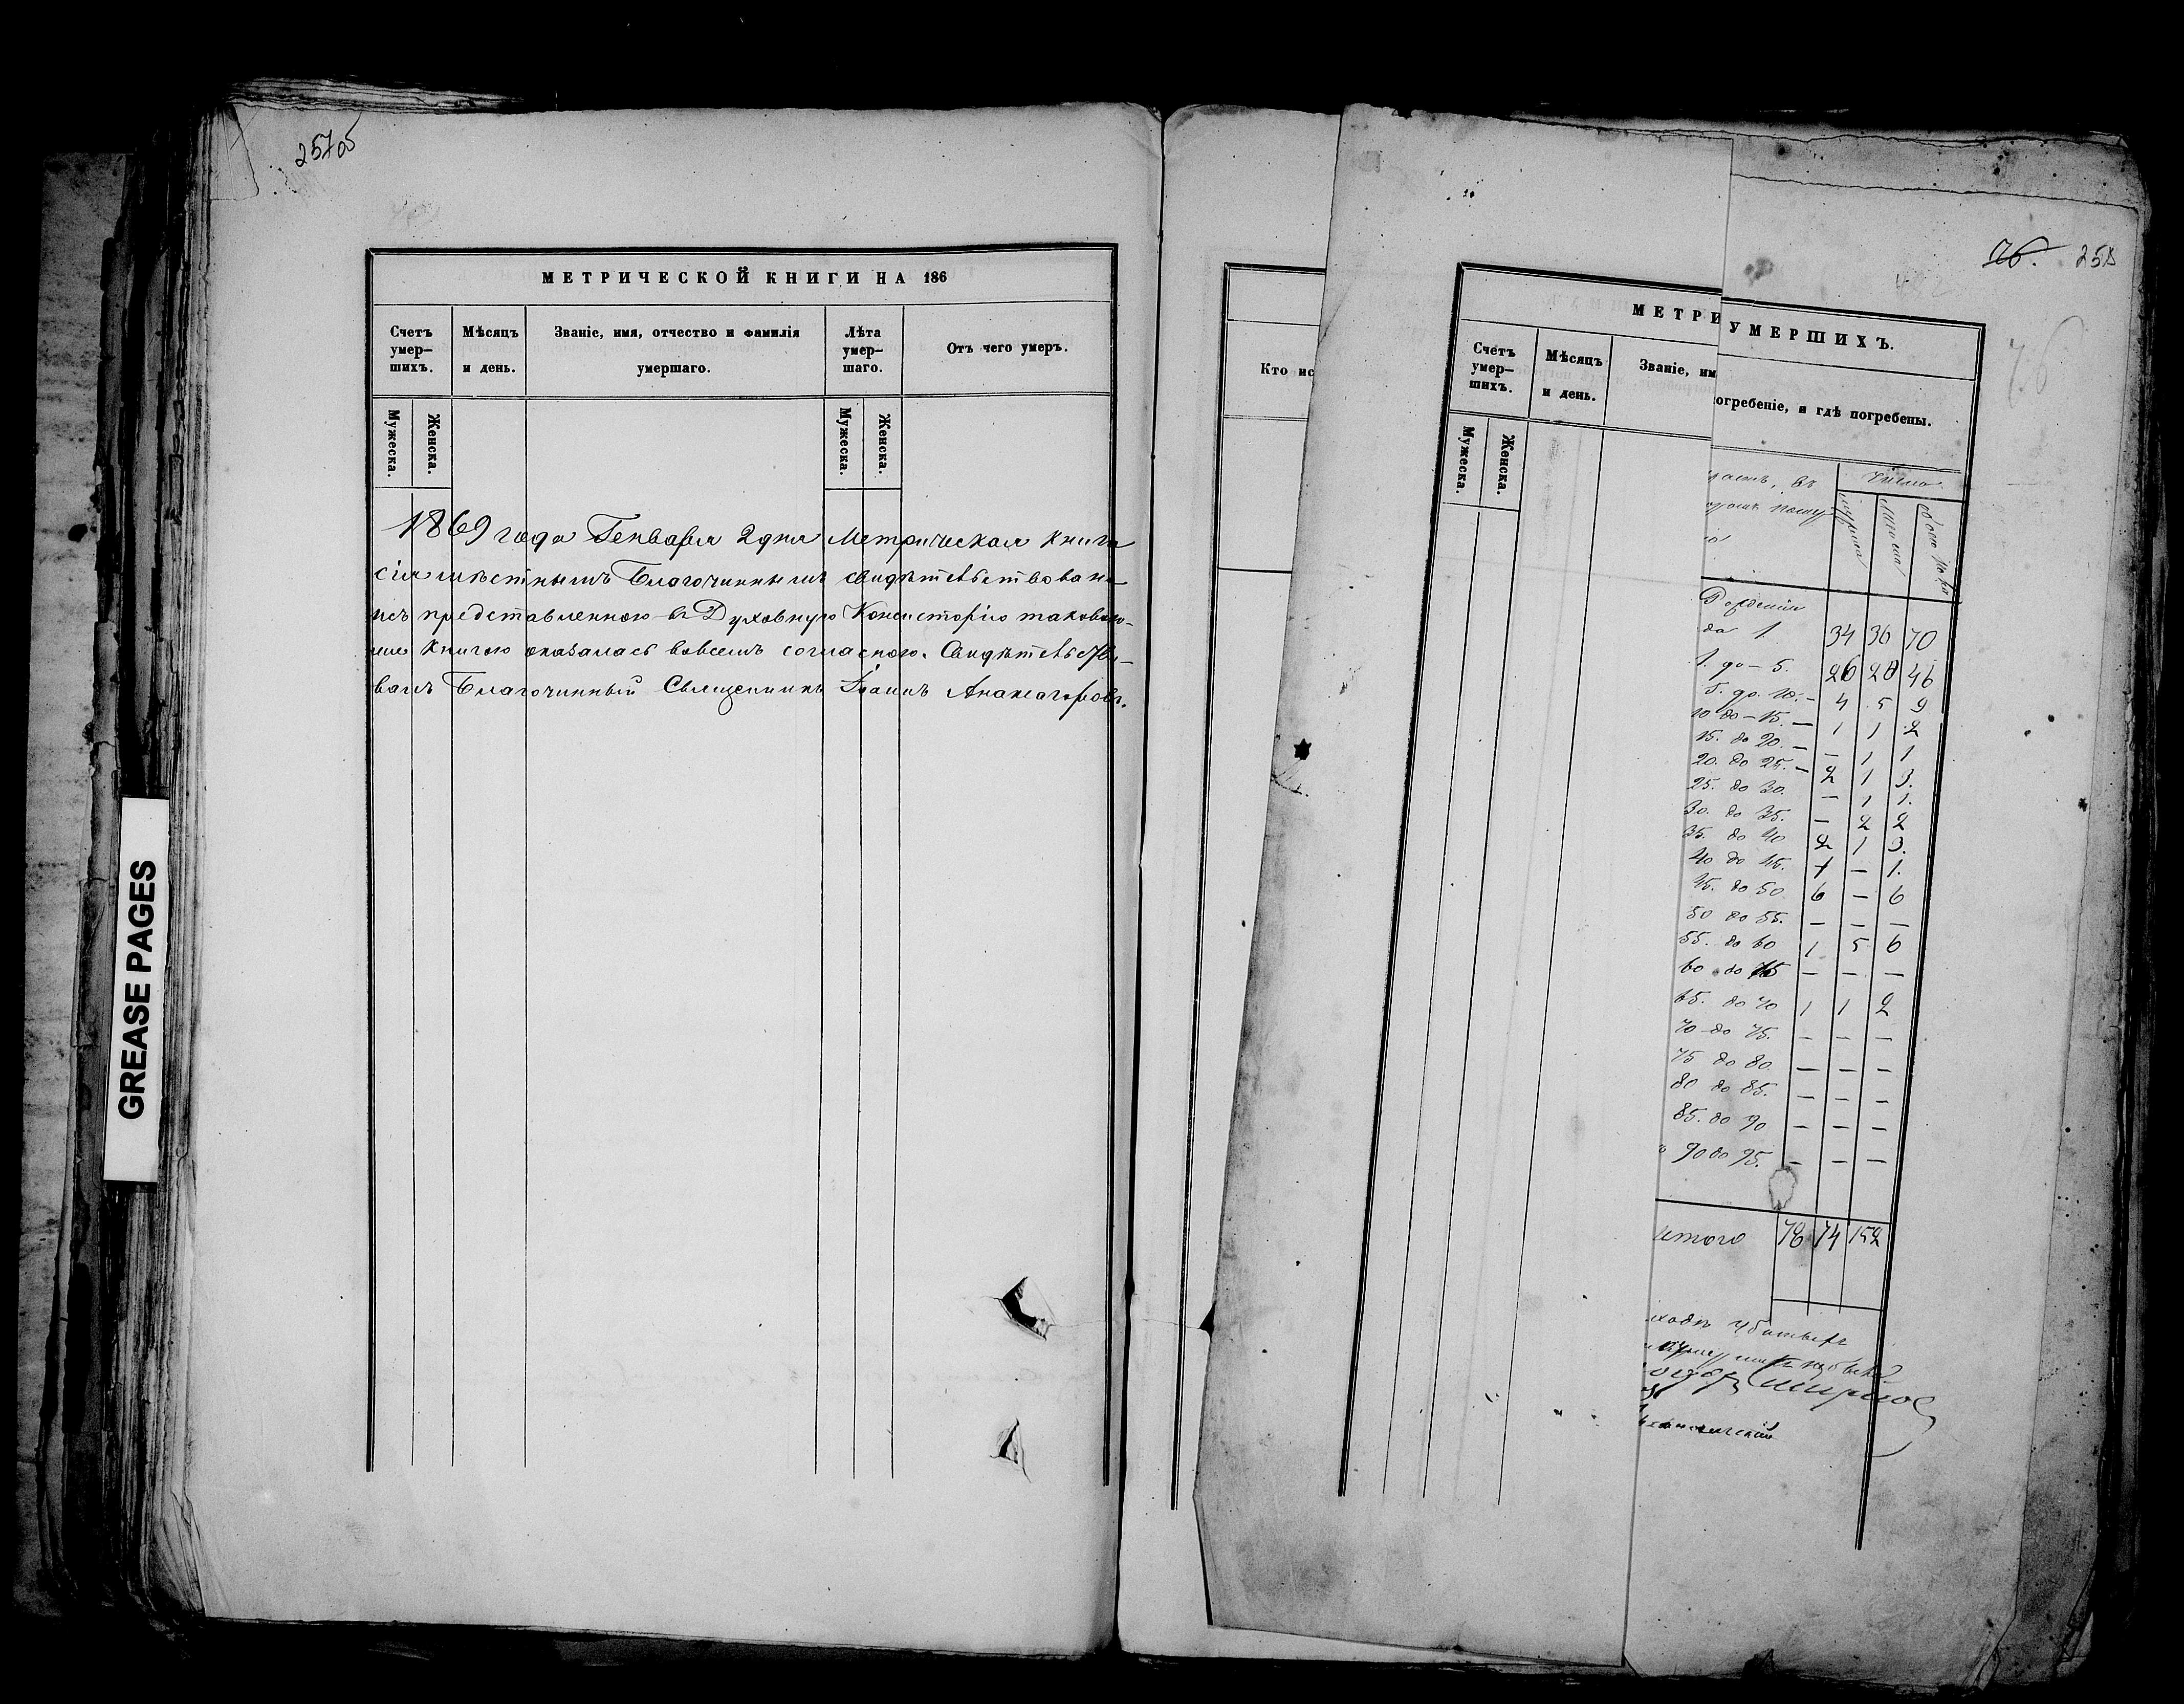 257об
МЕТРИЧЕСКОЙ КНИГИ НА 186
Счетъ умер- шихъ.
Мѣсяцъ и день.
Званіе, имя, отчество и фамилія умершаго.
Лѣта умер- шаго.
Отъ чего умеръ.
Мужеска.
Женска.
Мужеска.
Женска.
1869 года Генваря 2 дня Метрическая книга
сія мѣстнымъ Благочиннымъ свидѣтельствована
представленною въ Духовную Консисторію таковою-
же книгою оказалась вовсемъ согласною. Свидѣтельство-
валъ Благочинный Священникъ Іоаннъ Анаксагоровъ.
GREASE PAGES
Кто ис
МЕТРИ
Счетъ умер- шихъ.
Мѣсяцъ и день.
Званіе, им
Мужеска.
Женска.
76. 258
76
УМЕРШИХЪ.
огребеніе, и гдѣ погребены.
Число
Рожденія
до 1 34 36 70
1. до - 5. 26 20 46
5. до. 10. - 4 5 9
10 до - 15. - 1 1 2
15. до 20. - - 1 1
20. до 25. - 2 1 3.
25. до 30. - 1 1.
30. до 35. - 2 2
35. до 40 2 1 3.
40 до 45. 1 - 1.
45. до 50 6 - 6
50 до 55. - - -
55. до 60 1 5 6
60 до 65 - - -
65. до 70 1 1 2
70 до 75. - - -
75 до 80 - - -
80 до 85. - - -
85. до 90 - - -
90 до 95. - - -
итого 78 74 152